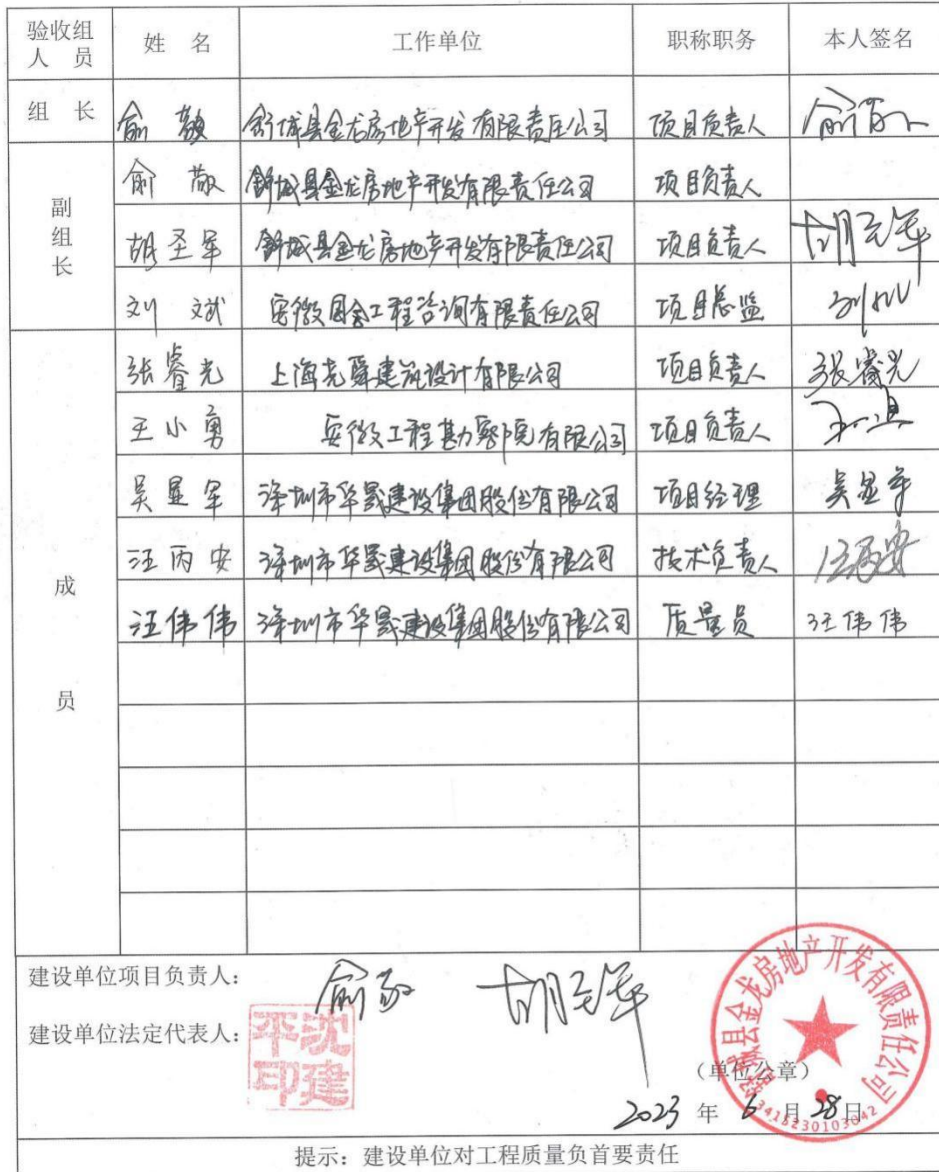 验收组人 员 姓 名 工作单位 职称职务 本人签名
组 长 俞 敬 舒城县金龙房地产开发有限责任公司 项目负责人 俞敬
副组长 俞 敬 舒城县金龙房地产开发有限责任公司 项目负责人
胡圣军 舒城县金龙房地产开发有限责任公司 项目负责人 胡圣军
刘 斌 安徽国金工程咨询有限责任公司 项目总监 刘斌
成员 张睿光 上海尧舜建筑设计有限公司 项目负责人 张睿光
王小勇 安徽工程勘察院有限公司 项目负责人
吴显军 深圳市华晟建设集团股份有限公司 项目经理 吴显军
汪丙安 深圳市华晟建设集团股份有限公司 技术负责人 汪丙安
汪伟伟 深圳市华晟建设集团股份有限公司 质量员 汪伟伟
建设单位项目负责人： 俞敬 胡圣军
建设单位法定代表人： 沈建平印
舒城县金龙房地产开发有限责任公司
（单位公章）
3415230103042
2023 年 6 月 28 日
提示：建设单位对工程质量负首要责任